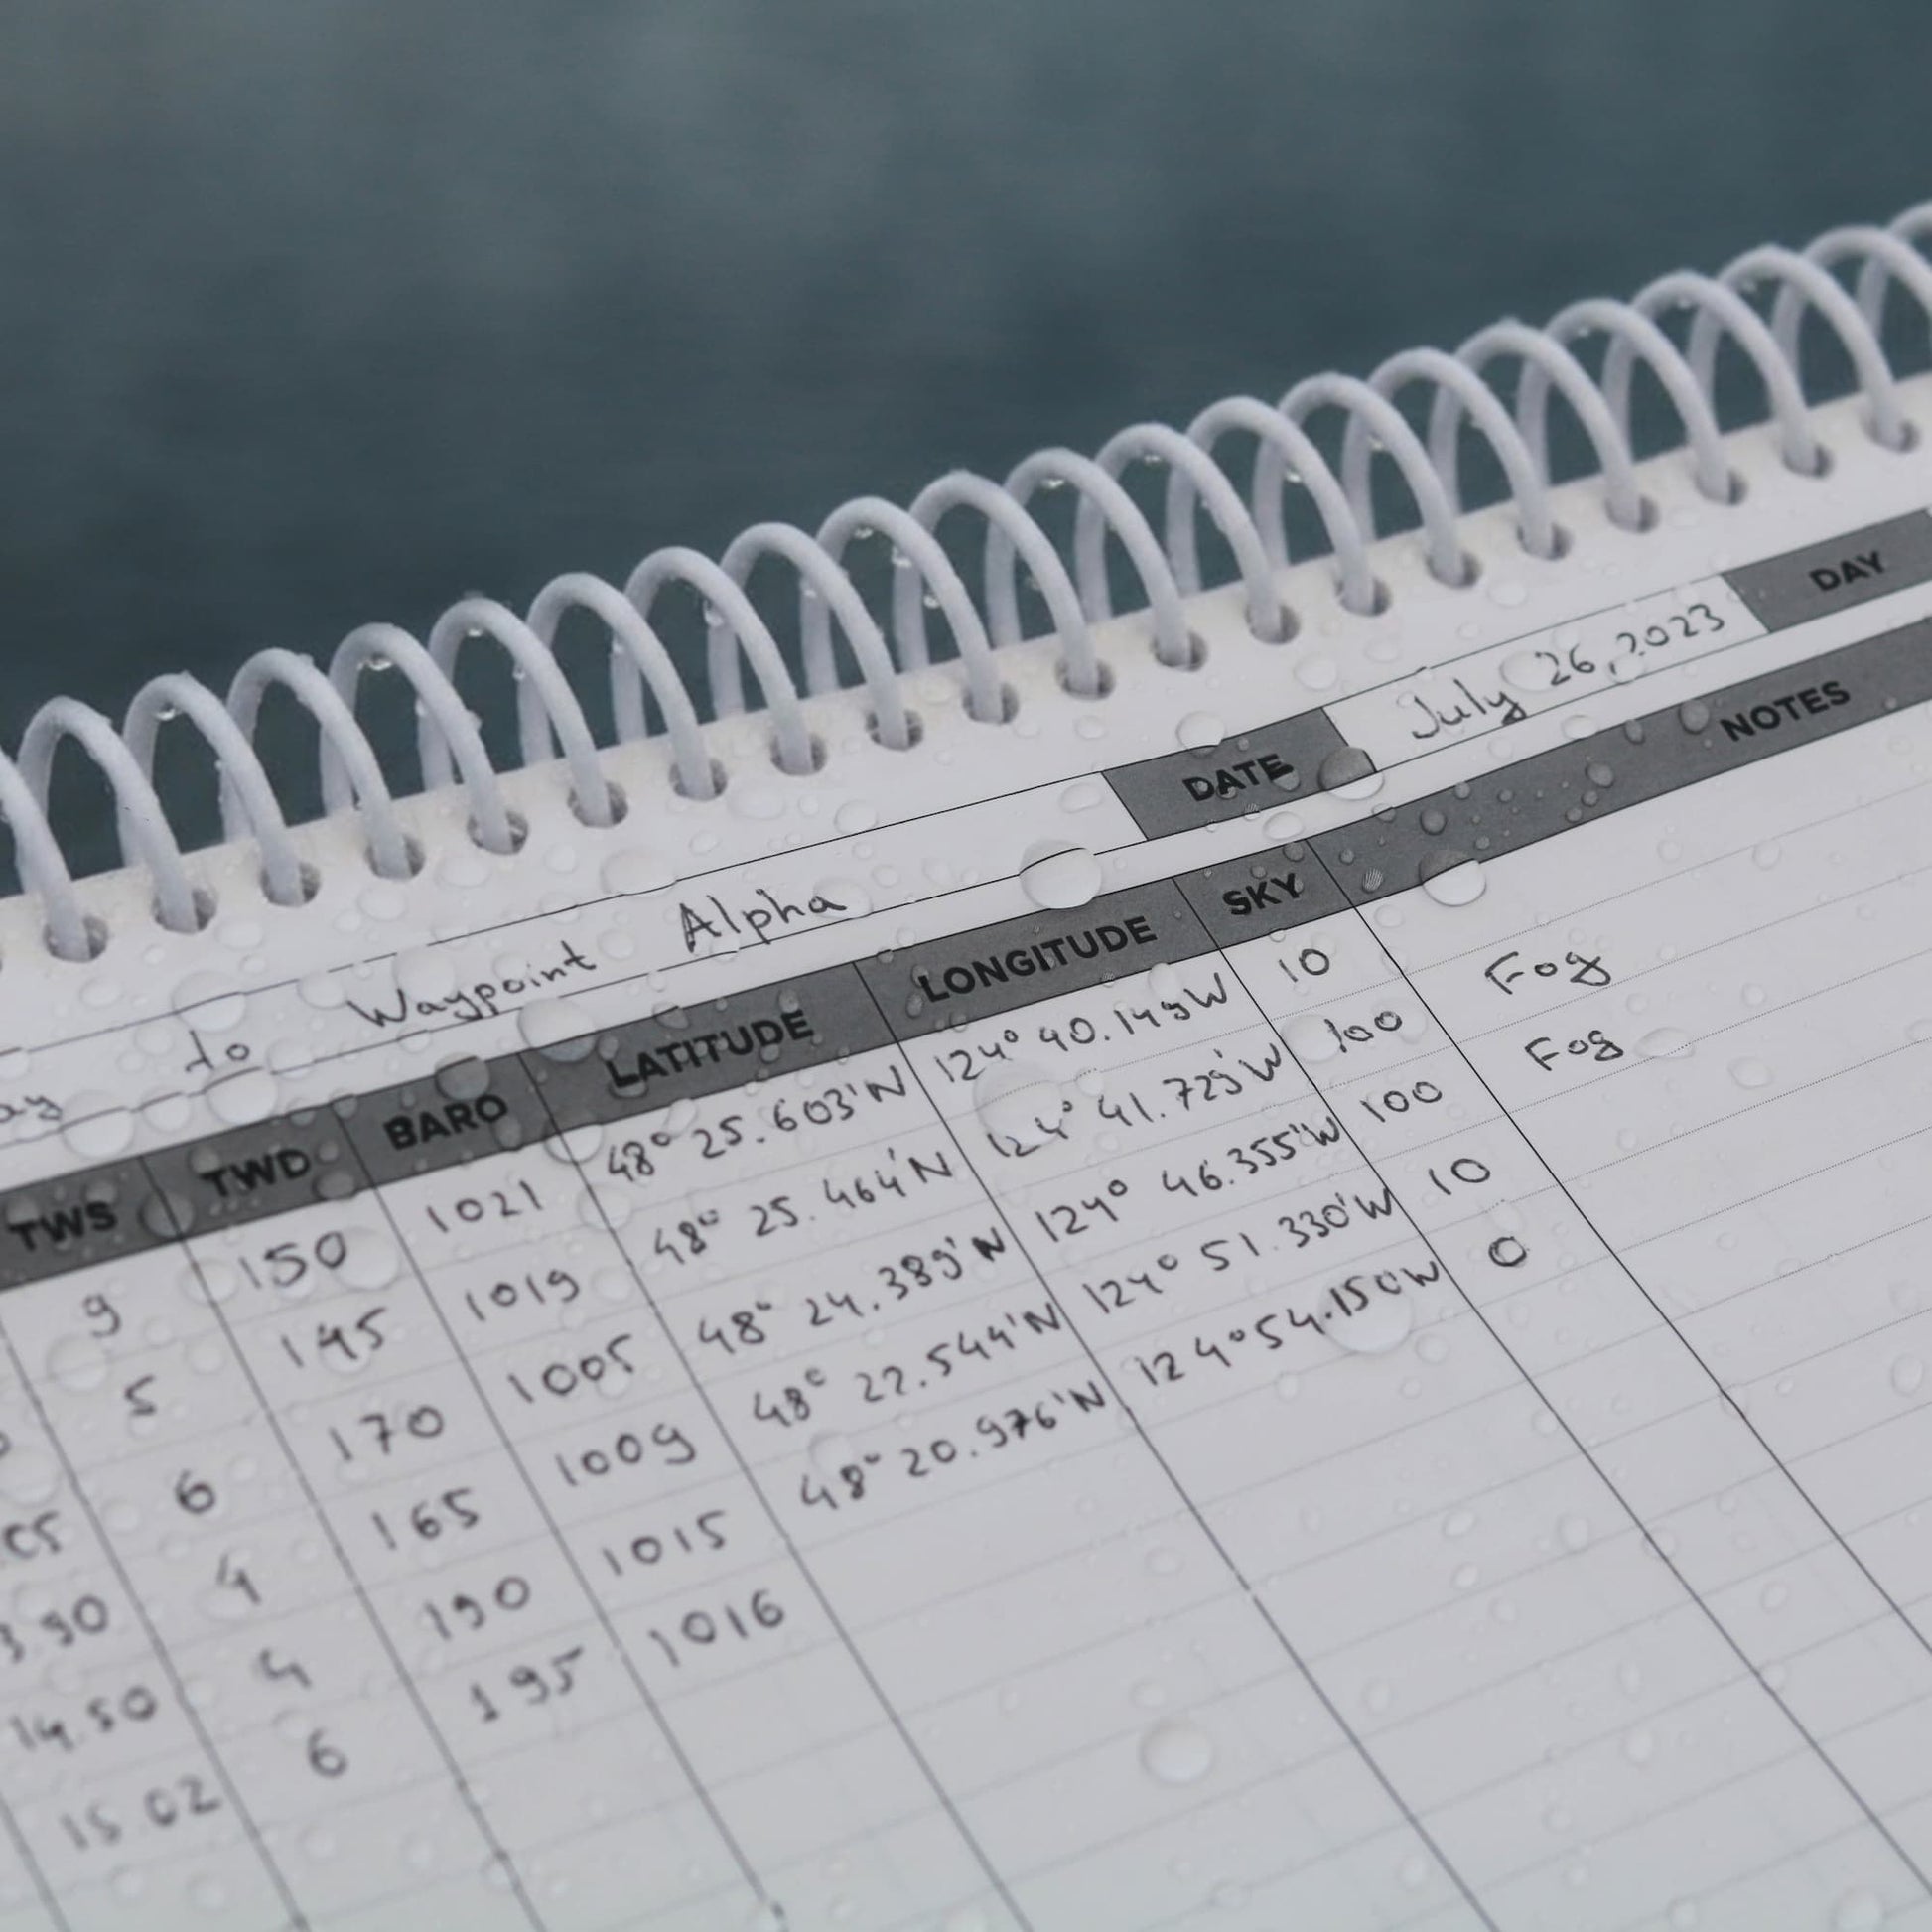 DATE July 26, 2023 DAY
to Waypoint Alpha
TWS TWD BARO LATITUDE LONGITUDE SKY NOTES
9 150 1021 48° 25.603'N 124° 40.149W 10
5 145 1019 48° 25.464'N 124° 41.729'W 100 Fog
6 170 1005 48° 24.389'N 124° 46.355'W 100 Fog
4 165 1009 48° 22.544'N 124° 51.330'W 10
14.50 4 190 1015 48° 20.976'N 124°54.150W 0
15.02 6 195 1016